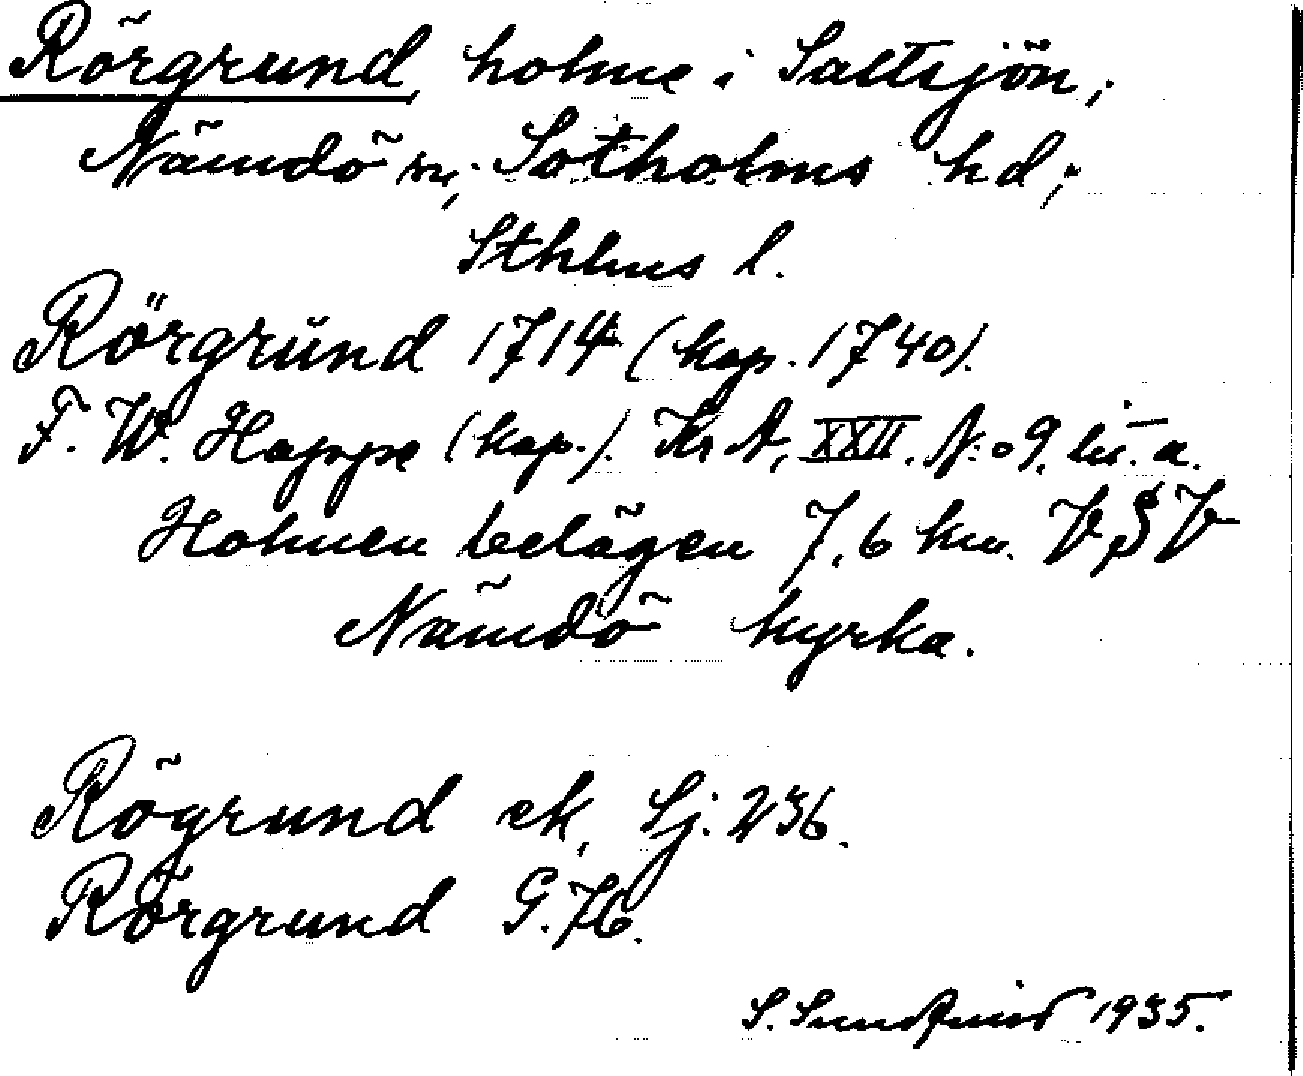 Rörgrund, holme i Saltsjön,
Nämdö sn, Sotholms hd;
Sthlms l.
Rörgrŭnd 1714 (kop. 1740).
F. W. Happe (kop.). Kr A, XXII. N:o 9. lit. a.
Holmen belägen 7,6 km. V,S V
Nämdö kyrka.
Rögrund ek, Sj. 236.
Rörgrund G. 76.
S. 1935.